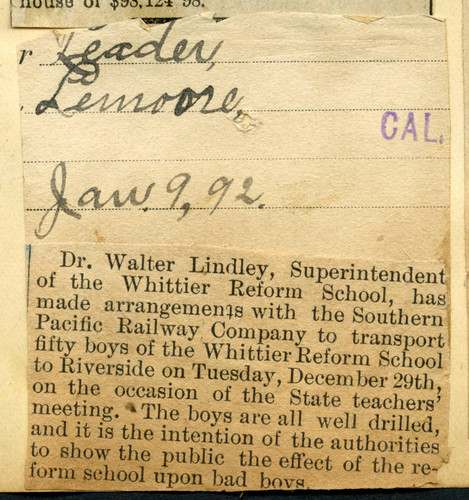 house of $98,124 98.
r Leader,
. Lemoore,
CAL.
Jan. 9, 92.
Dr. Walter Lindley, Superintendent
of the Whittier Reform School, has
made arrangements with the Southern
Pacific Railway Company to transport
fifty boys of the Whittier Reform School
to Riverside on Tuesday, December 29th,
on the occasion of the State teachers'
meeting. The boys are all well drilled,
and it is the intention of the authorities
to show the public the effect of the re-
form school upon bad boys.